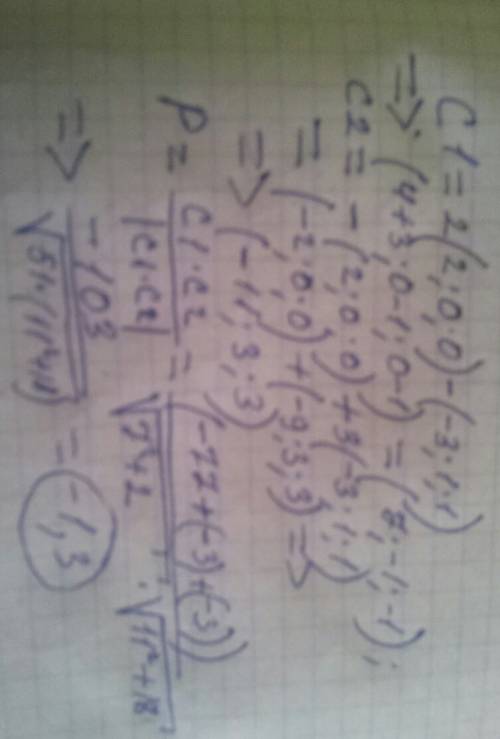 C1 = 2(2;0;0) - (-3;1;1)
=> (4+3;0-1;0-1) = (7;-1;-1);
C2 = -(2;0;0) + 3(-3;1;1)
= (-2;0;0) + (-9;3;3) =>
=> (-11;3;3)
P = C1·C2 / |C1·C2| = (-77+(-3)+(-3)) / √7²+2 · √11²+18
=> -103 / √51·(11²+18) = -1,3